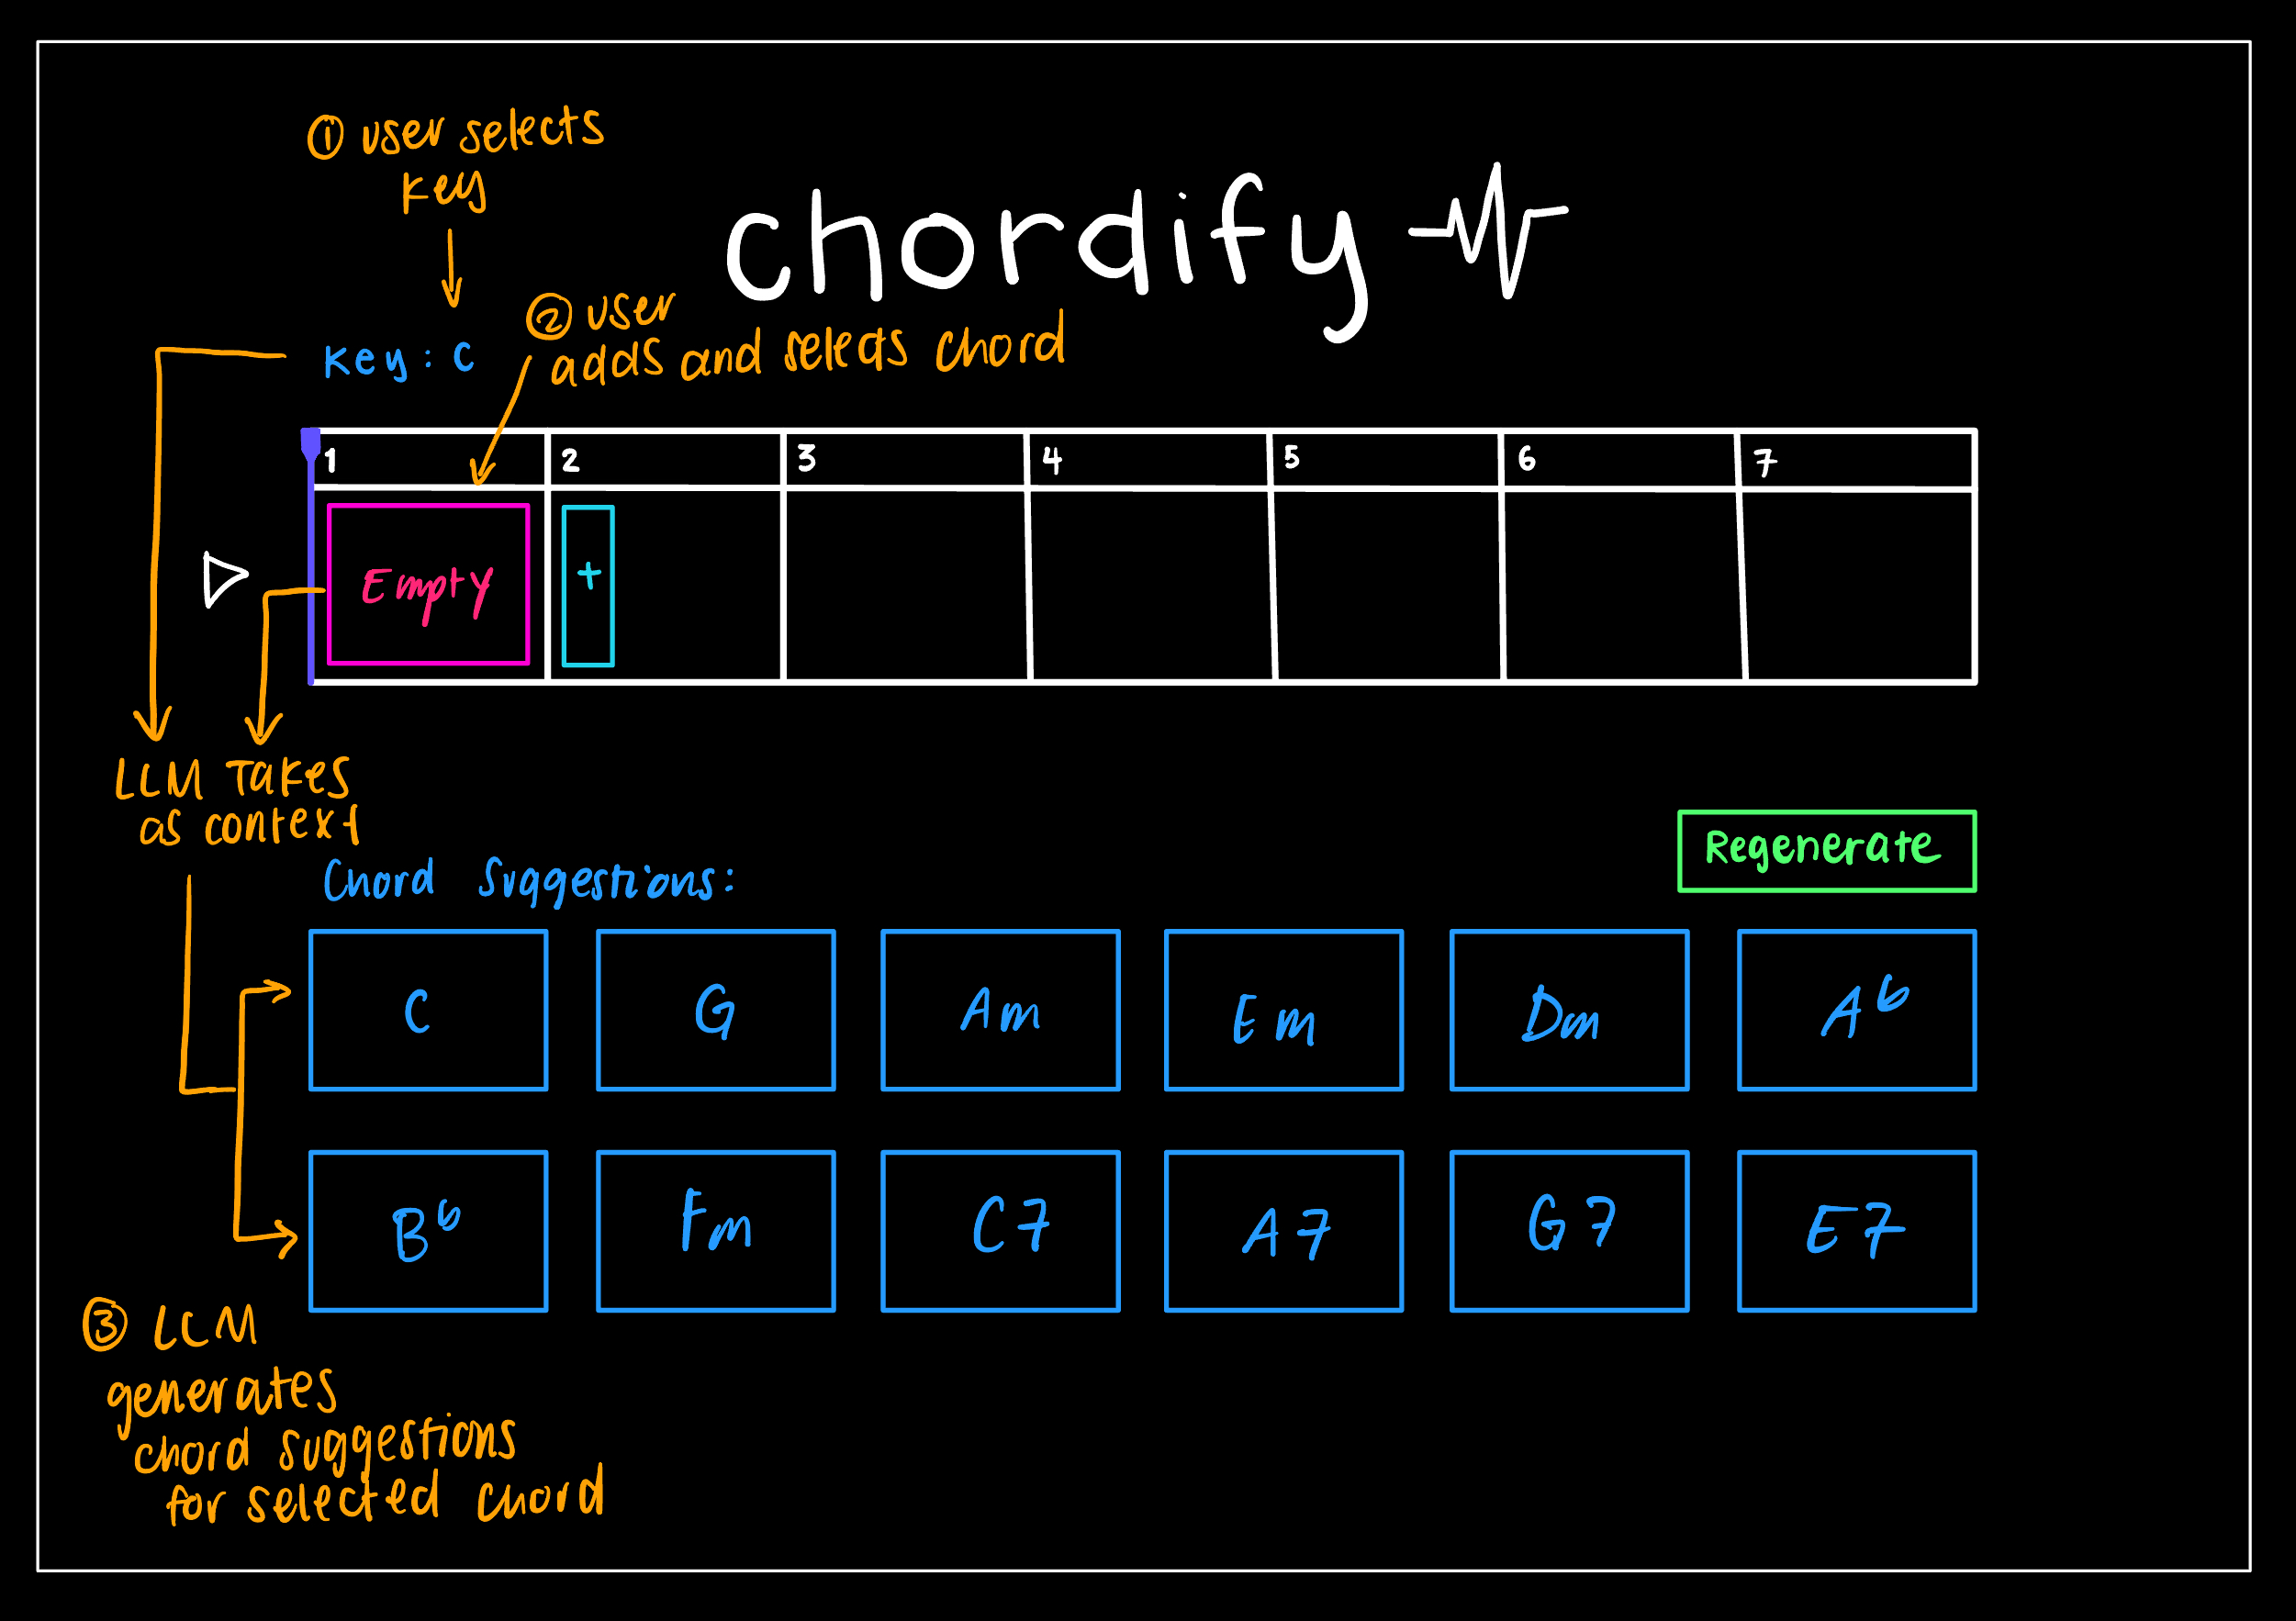 ① user selects
key
chordify
② user
adds and selects chord
Key: C
1 2 3 4 5 6 7
Empty
+
LLM Takes
as context
Chord Suggestions:
Regenerate
C G Am Em Dm A♭
B♭ Fm C7 A7 G7 E7
③ LLM
generates
chord suggestions
for selected chord